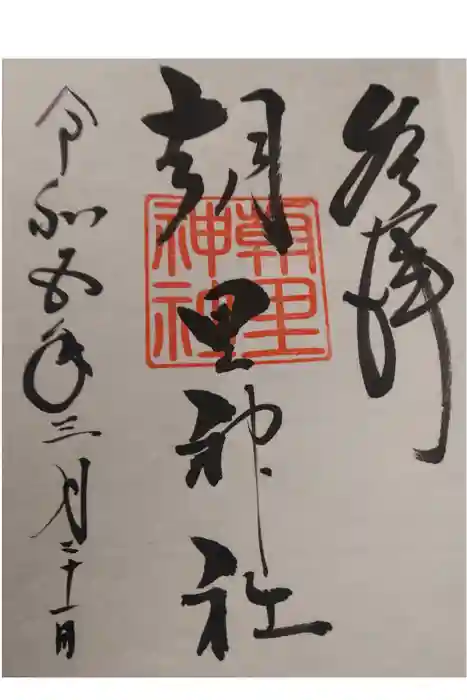 参拝
朝里神社
朝里
神社
令和五年三月二十一日